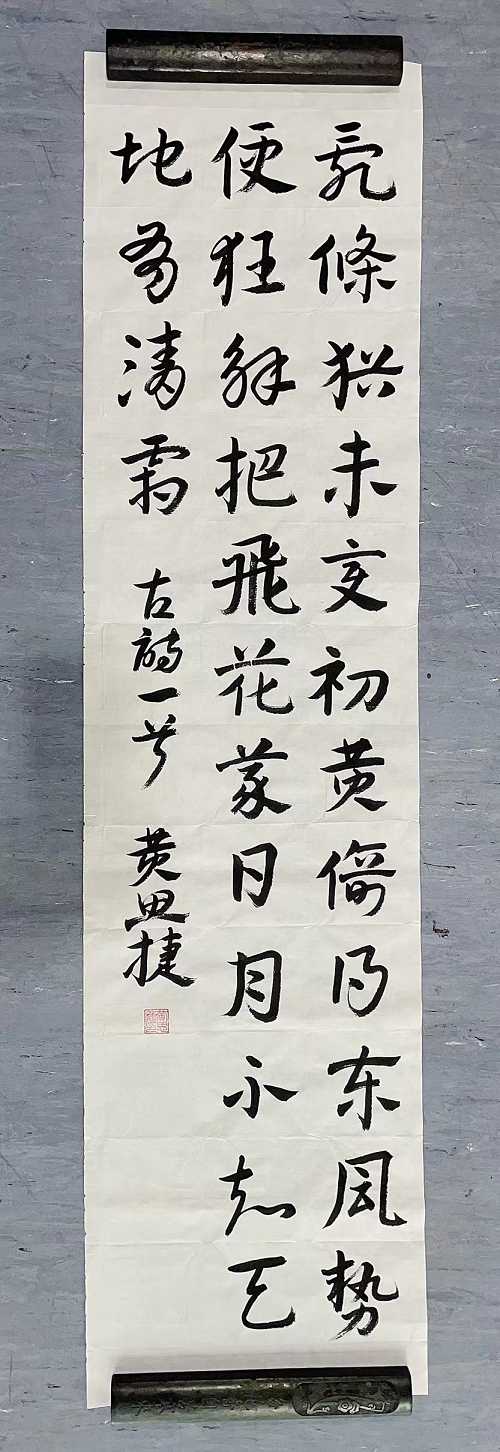 亂條猶未变初黄倚得东風势
便狂解把飛花蒙日月不知天
地有清霜 古詩一首 黄思捷